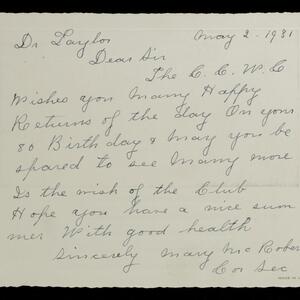 May 2 - 1931
Dr Taylor
Dear Sir
The C. C. W. C
Wishes you Many Happy
Returns of the day On your
80 Birthday & May you be
spared to see Many more
Is the wish of the Club
Hope you have a nice sum
mer With good health
Sincerely Mary Mc Rober
Cor Sec